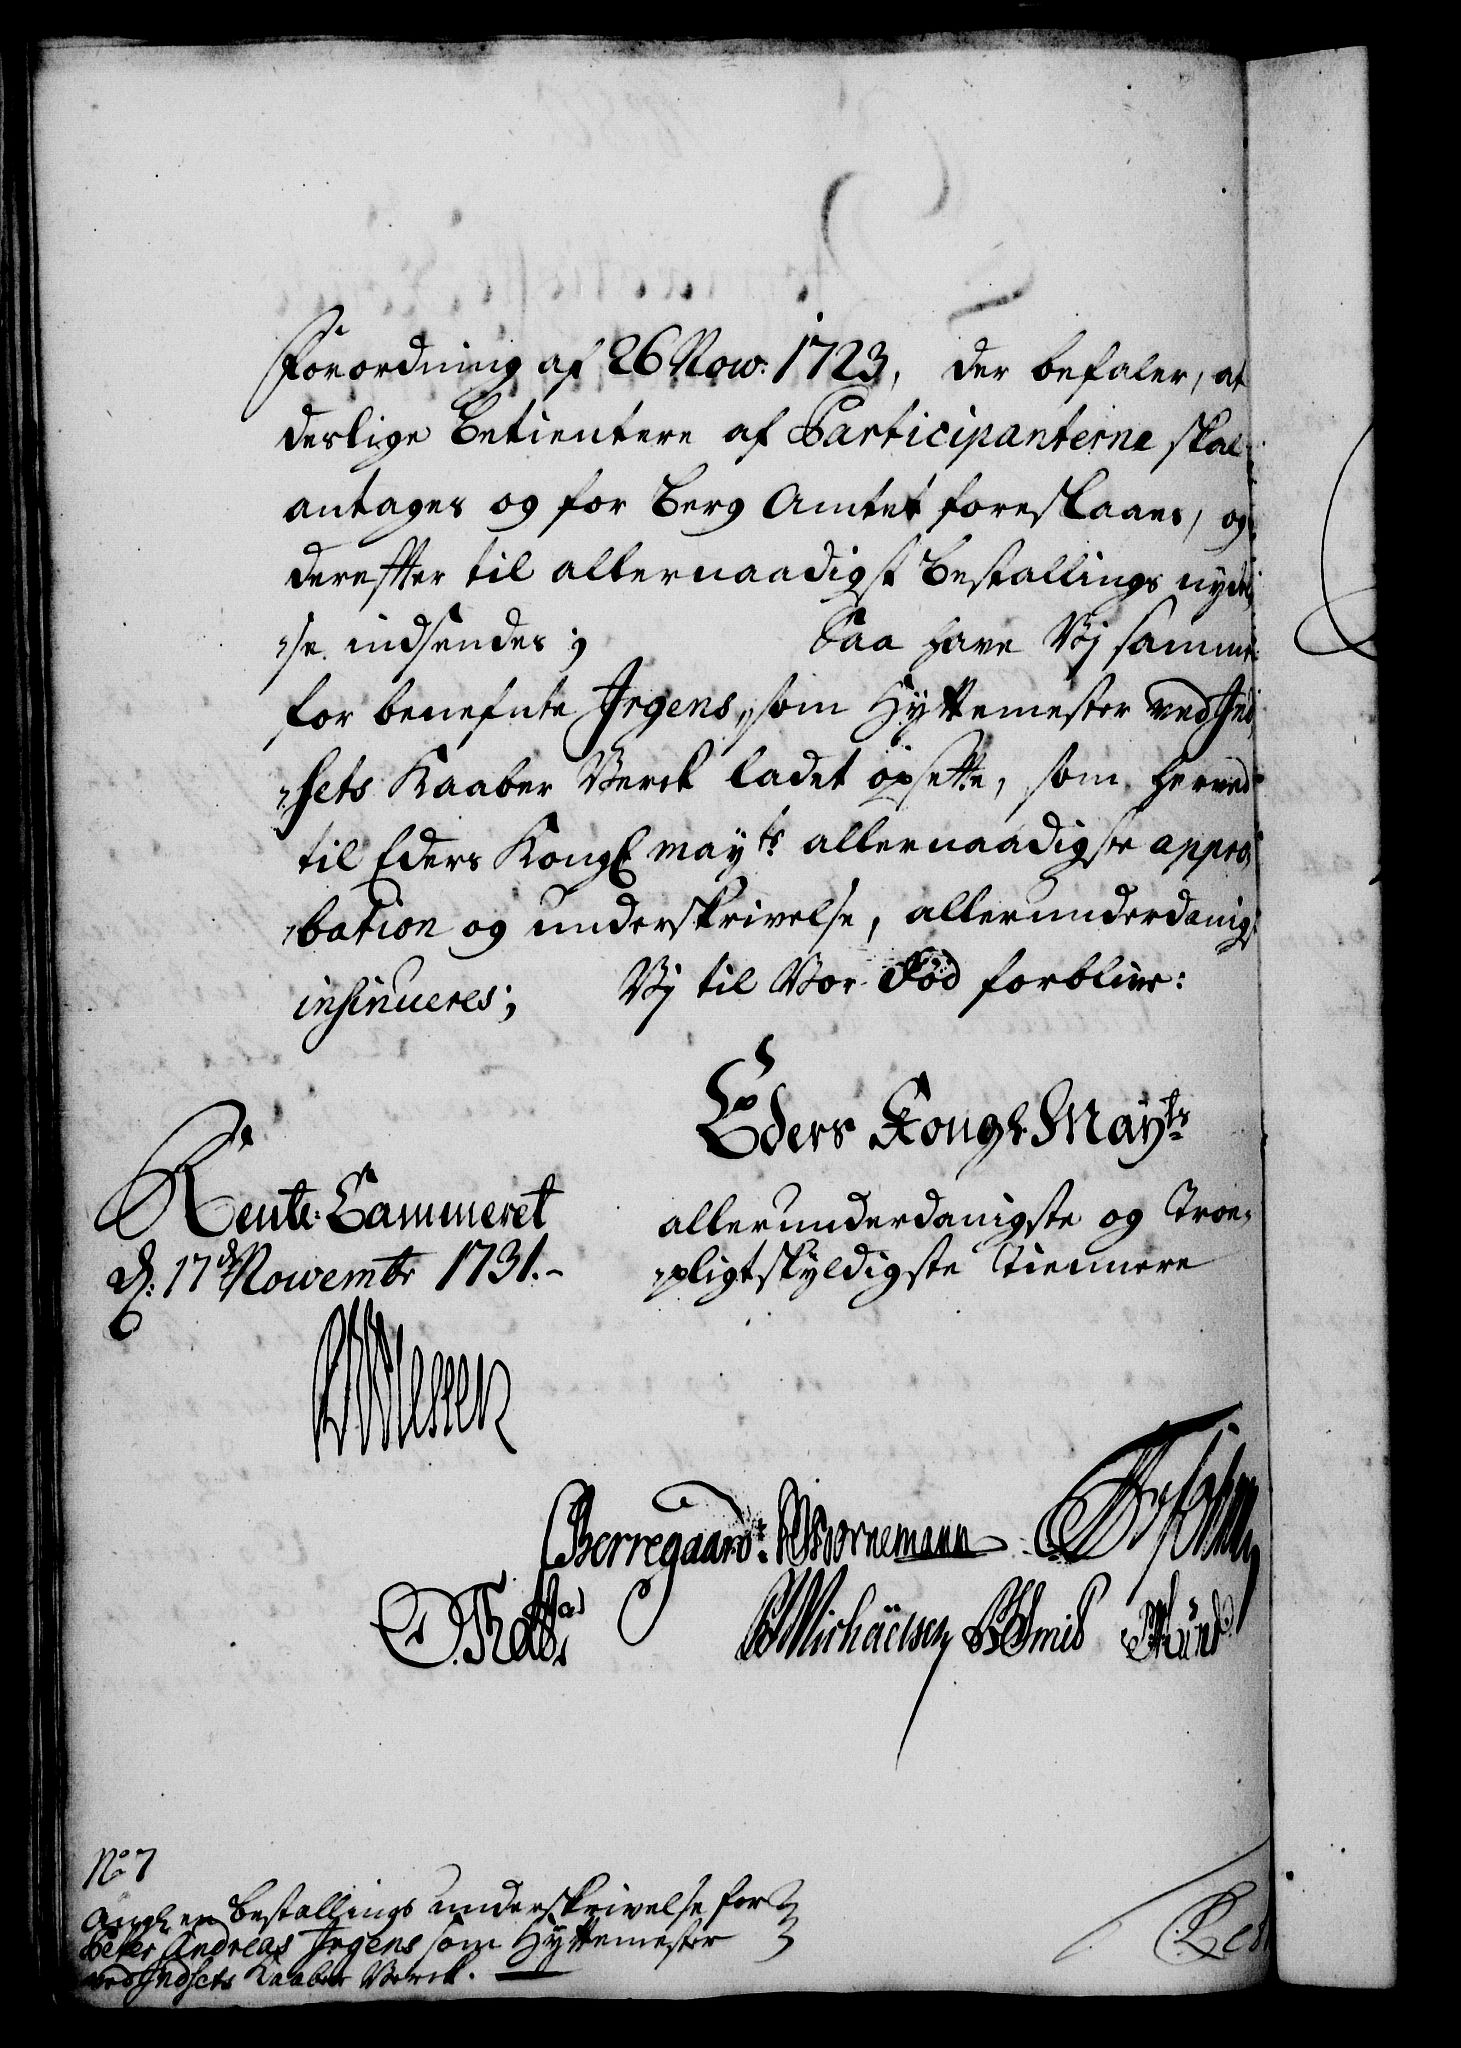 Forordning af 26 Nov: 1723, der befaler, at
deslige Betientere af Participanterne skal
antages og for Berg Amtet foreslaaes, og
derefter til allernaadigst Bestallings nydel,
,,se indsendes; Saa have Vj samme
for benefnte Irgens, som Hyttemester ved Ind,
,,sets Kaaber Verck ladet opsette, som herved
til Eders Kongl may:ts allernaadigste appro,
,,bation og underskrivelse, allerunderdanigst
insinueres; Vj til Vor Død forblive:
Eders Kongl. May:ts
Rente-Cammeret
d: 17de Novembr 1731.-
allerunderdanigste og Troe-
,,pligtskyldigste Tiennere
Berregaard. Bornemann
Michäelsen Smid Münd
No 7
Angl. en Bestallings underskrivelse for
Peter Andreas Irgens som Hyttemester
ved Indsets Kaaber Verck.